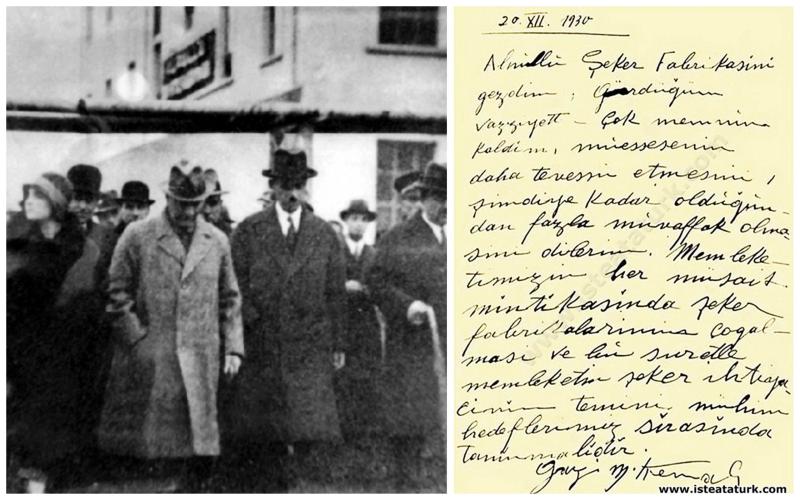 20. XII. 1930
Alpullu Şeker Fabrikasini
gezdim; Gördüğüm
vazziyett— Çok memnun
kaldim, müessesenin
daha tevessü etmesini,
şimdiye kadar olduğun-
dan fazla müvaffak olma-
sini dilerim. Memleke-
timizin her müsait
mintikasinda şeker
fabrikalarinin çoğal-
masi ve bu suretle
memleketin şeker ihtiya-
cinin temini, mühim
hedeflerimiz sirasinda
tanınmalidir.
Gazi M. Kemal
www.isteataturk.com
www.isteataturk.com